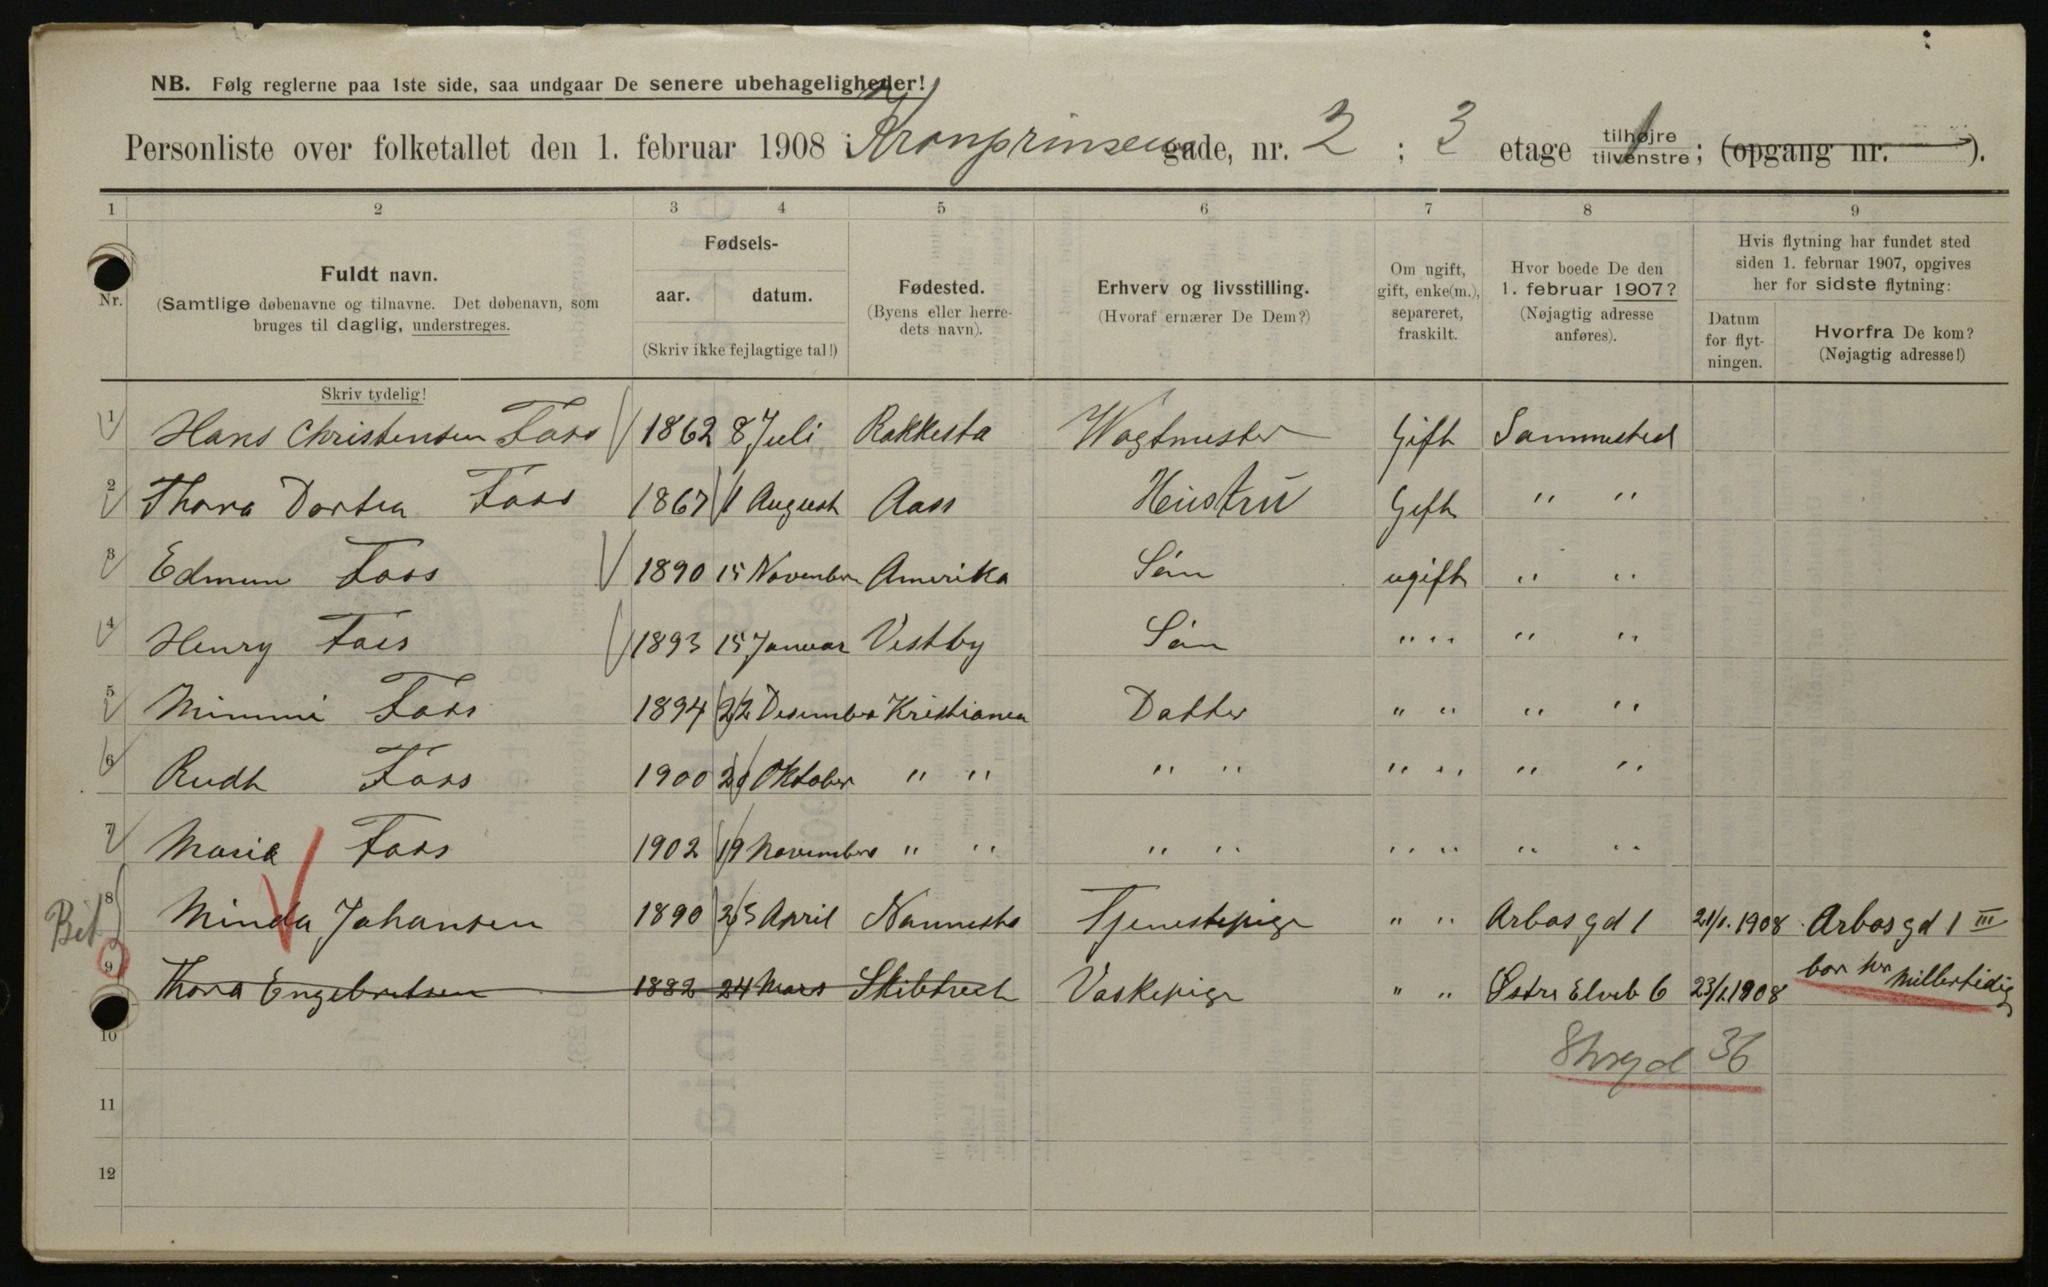 NB. Følg reglerne paa 1ste side, saa undgaar De senere ubehageligheder!
Personliste over folketallet den 1. februar 1908 i Kronprinsensgade, nr. 2 ; 3 etage tilhøjre tilvenstre ; (opgang nr. ).
1 2 3 4 5 6 7 8 9
Nr.
Fuldt navn.
(Samtlige døbenavne og tilnavne. Det døbenavn, som
bruges til daglig, understreges.
Skriv tydelig!
Fødsels-
aar. datum.
(Skriv ikke fejlagtige tal!)
Fødested.
(Byens eller herre-
dets navn).
Erhverv og livsstilling.
(Hvoraf ernærer De Dem?)
Om ugift,
gift, enke(m.),
separeret,
fraskilt.
Hvor boede De den
1. februar 1907?
(Nøjagtig adresse
anføres).
Hvis flytning har fundet sted
siden 1. februar 1907, opgives
her for sidste flytning:
Datum
for flyt-
ningen.
Hvorfra De kom?
(Nøjagtig adresse!)
1 Hans Christensen Foss 1862 8 Juli Rakkesta Wagtmester Gift Sammested
2 Thora Dortea Foss 1867 1 August Aass Hustru Gift " "
3 Edmun Foss 1890 15 November Amerika Søn ugift " "
4 Henry Foss 1893 15 Januar Vestby Søn " " " "
5 Mimmi Foss 1894 22 Desember Kristiania Datter " " " "
6 Rudt Foss 1900 Oktober " " " " " " " "
7 Maria Foss 1902 19 November " " " " " " " "
8 Minda Johansen 1890 23 April Nannesta Tjenestepige " " Arbosgd 1 21/1.1908 Arbosgd 1 III
Bet
9 Thora Engebretsen 1882 24 Mars Skibtvedt Vaskepige " " Østre Elveb 6 23/1.1908 bor her Millertidig
10 Storgd 36
11
12